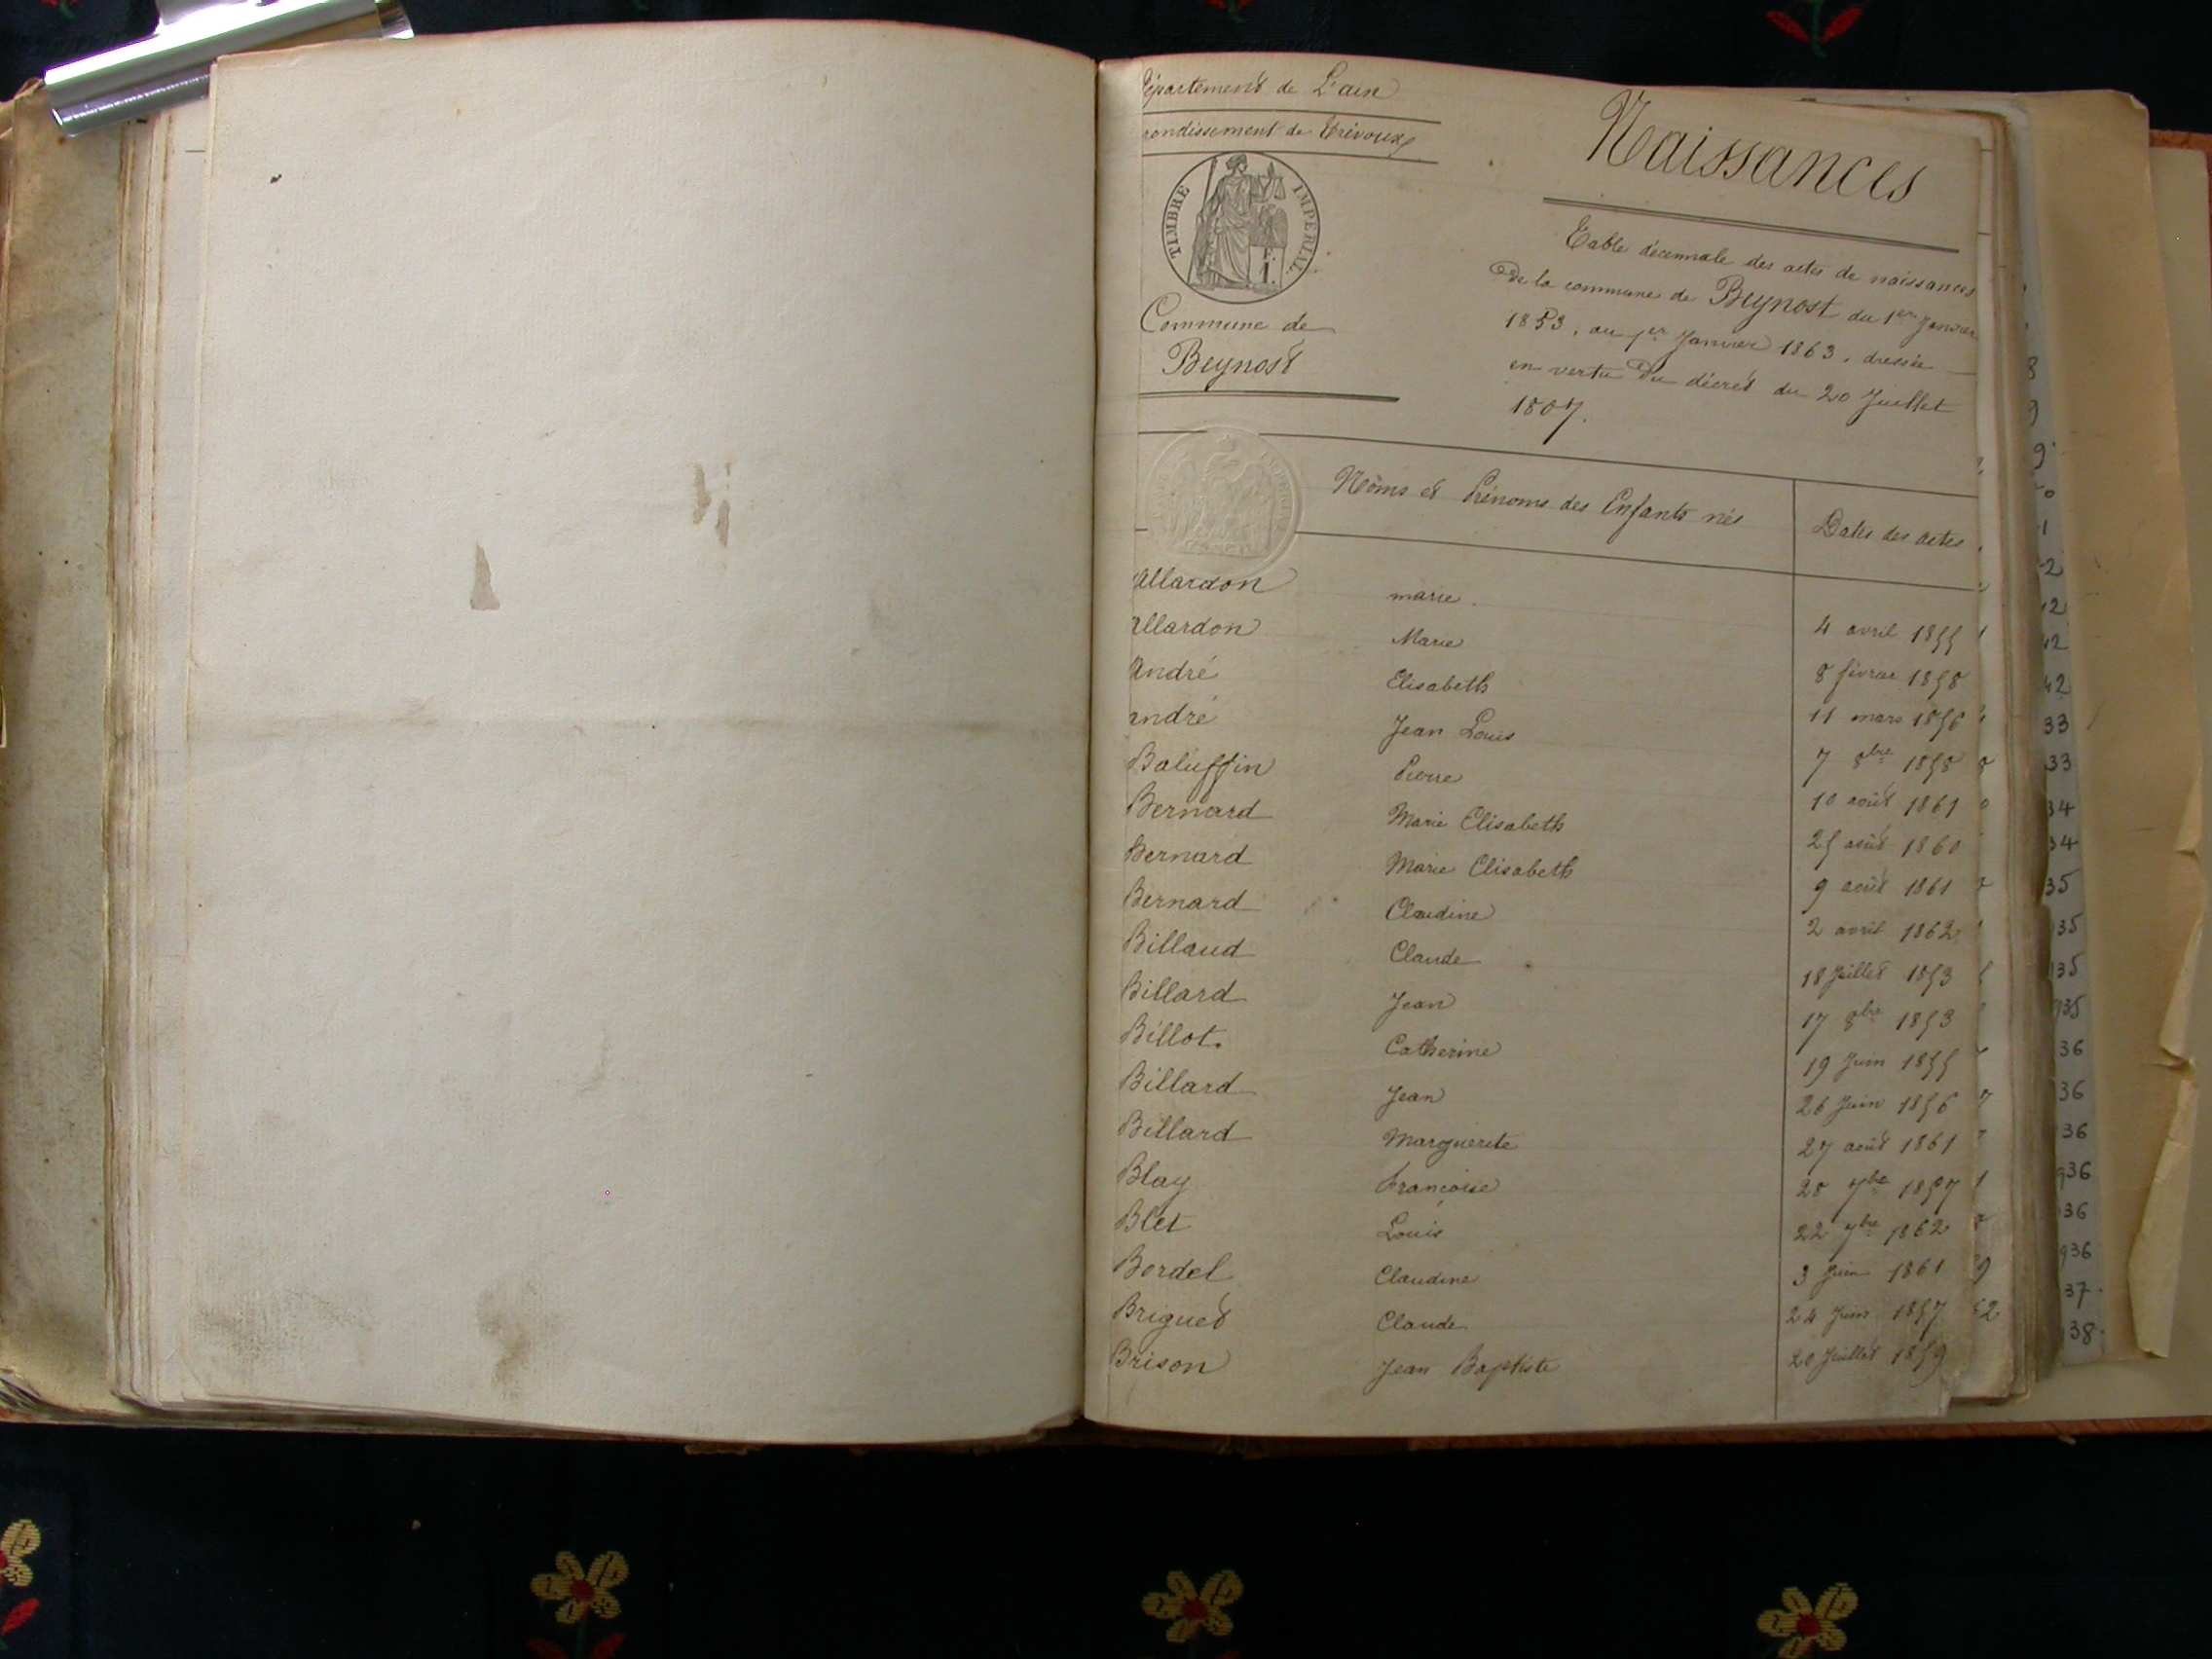 Département de L'ain
rondissement de Trévoux
TIMBRE IMPERIAL
F. 1.
Commune de
Beynost
Naissances
Table décennale des actes de naissances
De la commune de Beynost du 1er Janvier
1853, au 1er Janvier 1863, dressée
en vertu Du décret du 20 Juillet
1807.
Nôms et Prénoms des Enfants nés Dates des actes
Allardon marie 4 avril 1855
Allardon Marie 8 février 1858
André Elisabeth 11 mars 1856
André Jean Louis 7 8bre 1858
Baluffin Pierre 10 août 1861
Bernard Marie Elisabeth 25 août 1860
Bernard Marie Elisabeth 9 août 1861
Bernard Claudine 2 avril 1862
Billaud Claude 18 Juillet 1853
Billard Jean 17 8bre 1853
Billot. Catherine 19 Juin 1855
Billard Jean 26 Juin 1856
Billard Marguerite 27 août 1861
Blay Françoise 28 7bre 1857
Blet Louis 22 7bre 1862
Bordel Claudine 3 Juin 1861
Briguet Claude 24 Juin 1857
Brison Jean Baptiste 20 Juillet 1859
33
33
34
34
35
35
35
35
36
36
36
936
36
936
37
38